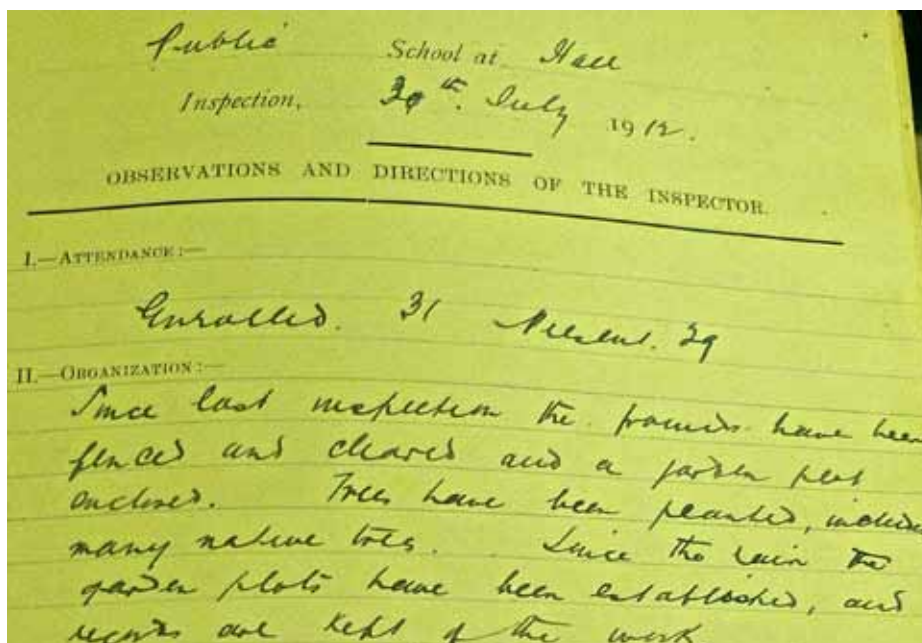 Public School at Hall
Inspection, 30th. July 1912.
OBSERVATIONS AND DIRECTIONS OF THE INSPECTOR.
I.—ATTENDANCE:—
Enrolled. 31 Present. 29
II.—ORGANIZATION:—
Since last inspection the grounds have been
fenced and cleared and a garden plot
enclosed. Trees have been planted,
many native trees. Since the rain the
garden plots have been established, and
records are kept of the work